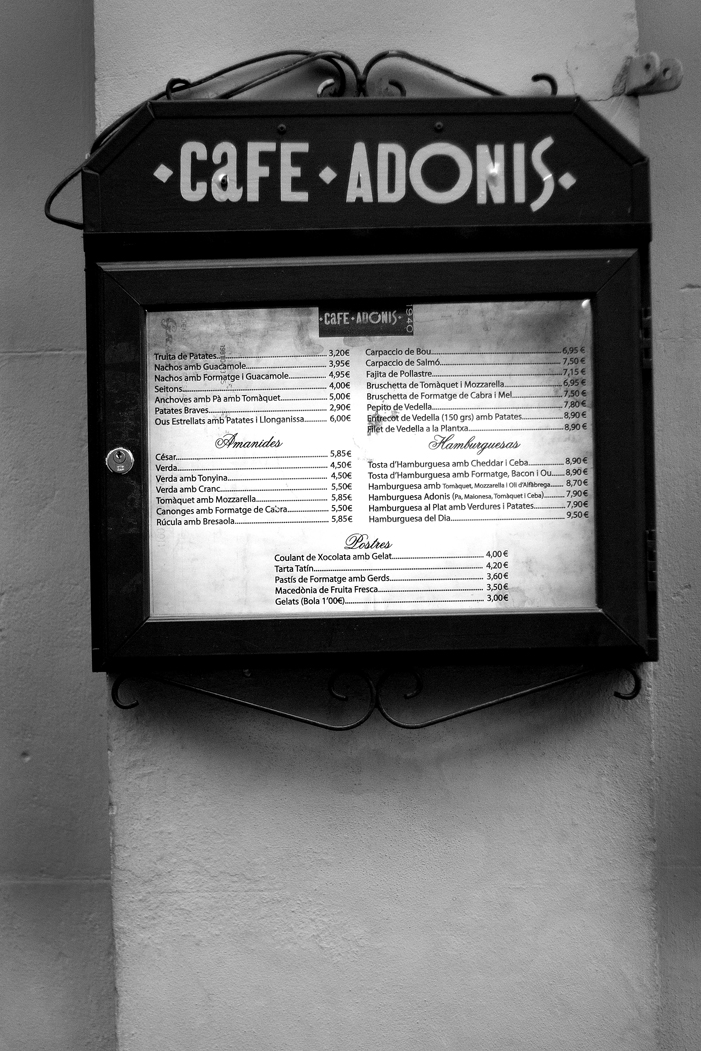 CaFE ADONIS
CaFE ADONIS 1940
Truita de Patates 3,20€
Nachos amb Guacamole 3,95€
Nachos amb Formatge i Guacamole 4,95€
Seitons 4,00€
Anchoves amb Pà amb Tomàquet 5,00€
Patates Braves 2,90€
Ous Estrellats amb Patates i Llonganissa 6,00€
Amanides
César 5,85€
Verda 4,50€
Verda amb Tonyina 4,50€
Verda amb Cranc 5,50€
Tomàquet amb Mozzarella 5,85€
Canonges amb Formatge de Cabra 5,50€
Rúcula amb Bresaola 5,85€
Carpaccio de Bou 6,95 €
Carpaccio de Salmó 7,50 €
Fajita de Pollastre 7,15 €
Bruschetta de Tomàquet i Mozzarella 6,95 €
Bruschetta de Formatge de Cabra i Mel 7,50 €
Pepito de Vedella 7,80 €
Entrecot de Vedella (150 grs) amb Patates 8,90 €
Filet de Vedella a la Plantxa 8,90 €
Hamburguesas
Tosta d'Hamburguesa amb Cheddar i Ceba 8,90 €
Tosta d'Hamburguesa amb Formatge, Bacon i Ou 8,90 €
Hamburguesa amb Tomàquet, Mozzarella i Oli d'Alfàbrega 8,70 €
Hamburguesa Adonis (Pa, Maionesa, Tomàquet i Ceba) 7,90 €
Hamburguesa al Plat amb Verdures i Patates 7,90€
Hamburguesa del Dia 9,50 €
Postres
Coulant de Xocolata amb Gelat 4,00 €
Tarta Tatín 4,20 €
Pastís de Formatge amb Gerds 3,60 €
Macedònia de Fruita Fresca 3,50 €
Gelats (Bola 1'00€) 3,00€